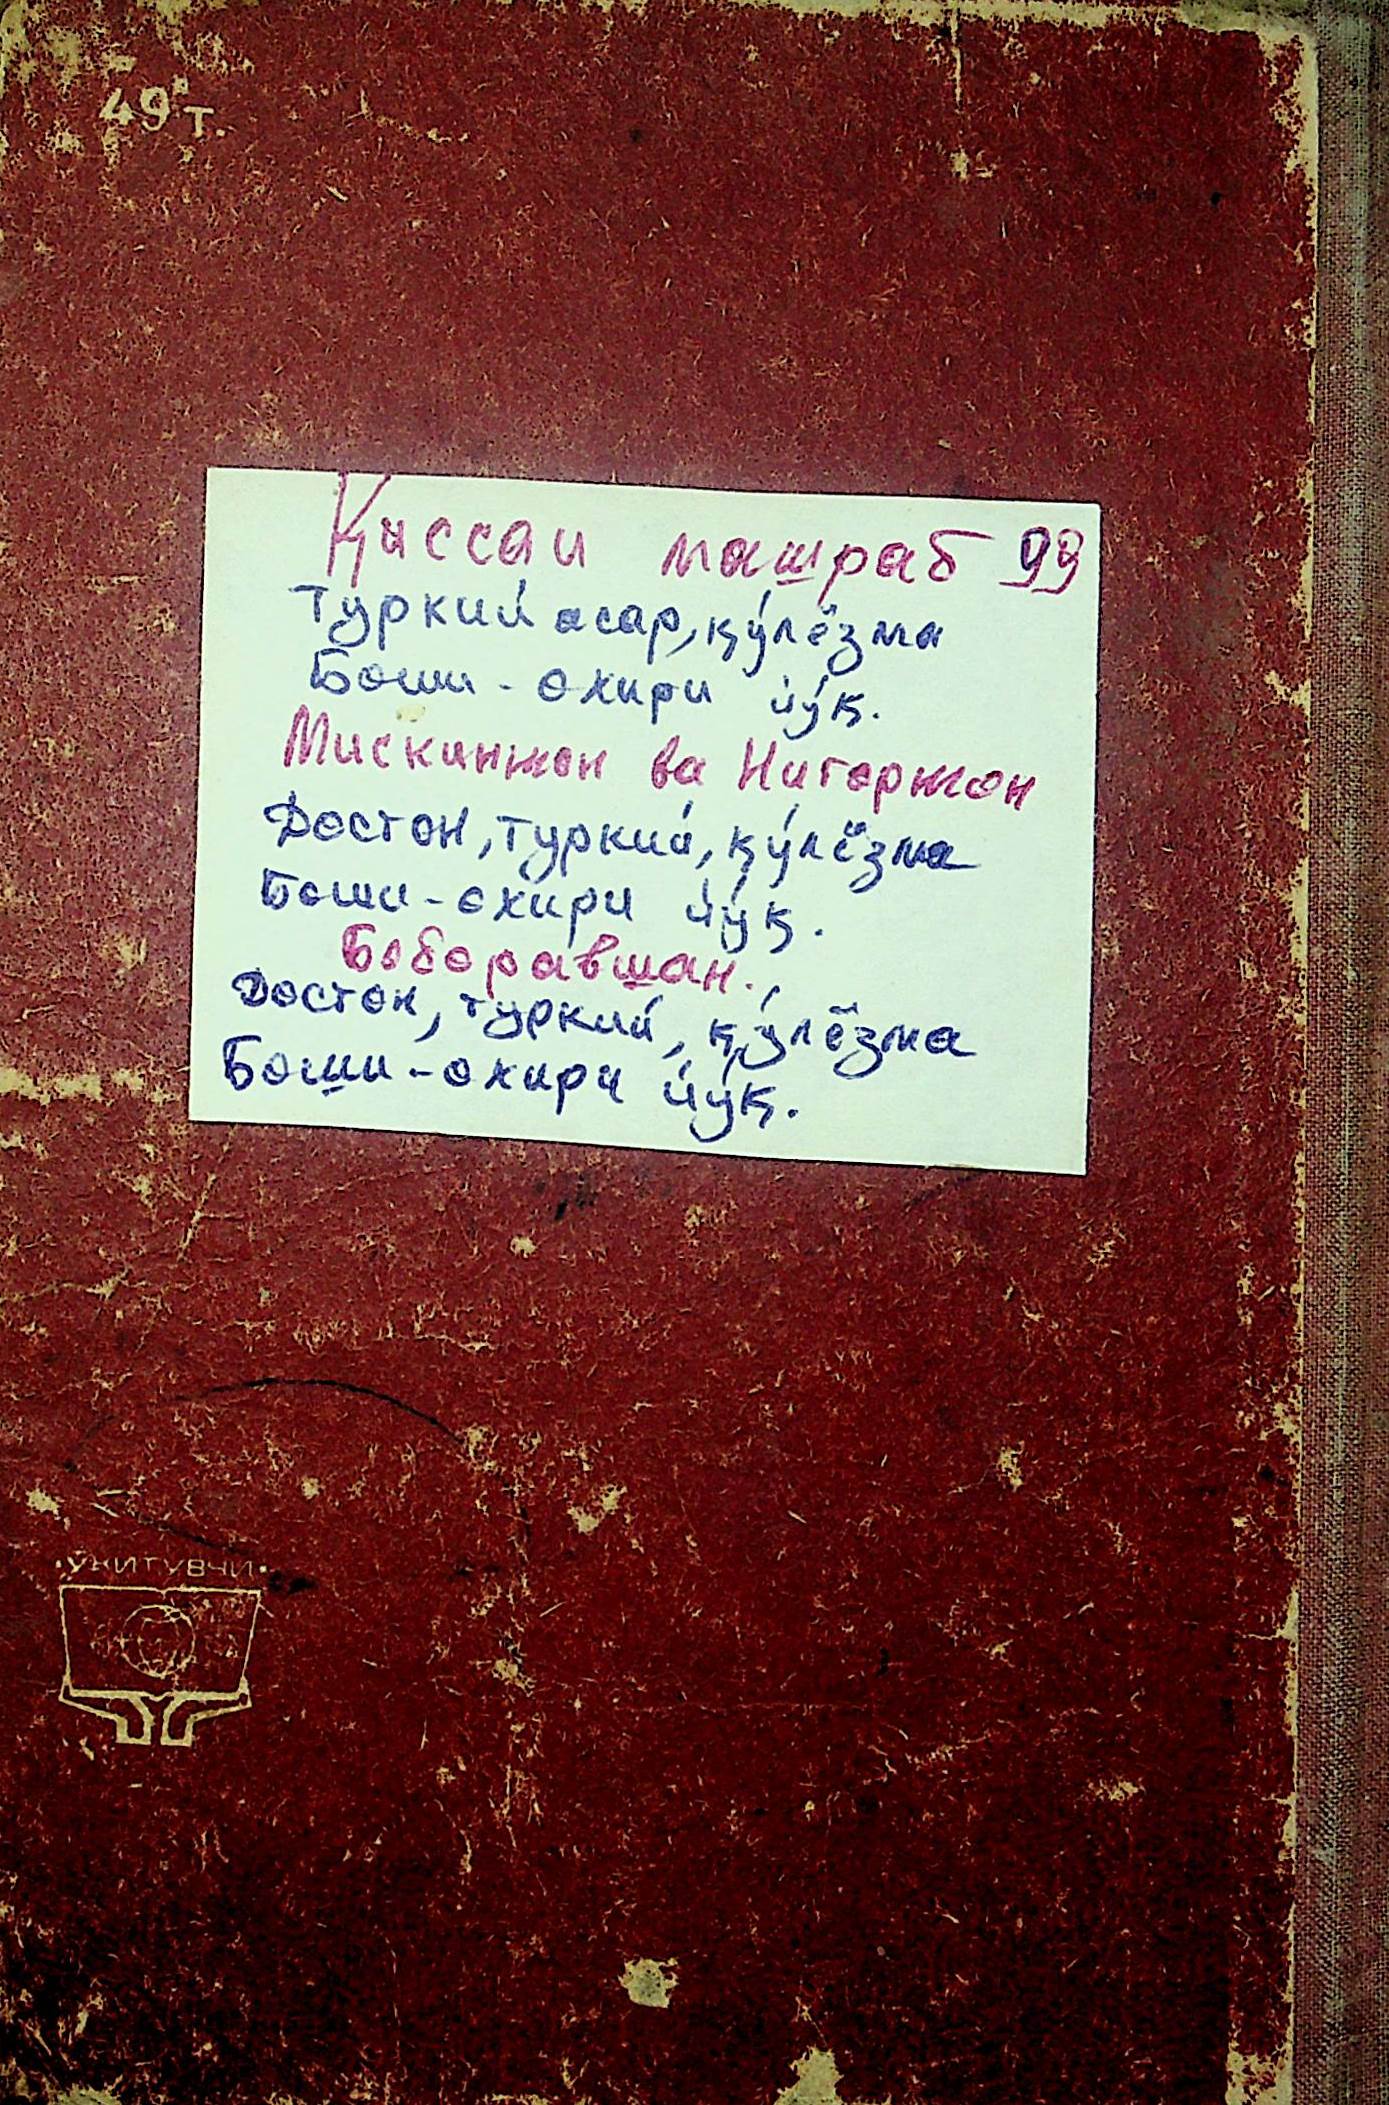 49к т.
Қиссаи машраб 99
Туркий асар, қўлёзма
Боши - охири йўқ.
Мискинжон ва Нигоржон
Достон, туркий, қўлёзма
Боши - охири йўқ.
Боборавшан.
Достон, туркий, қўлёзма
Боши - охири йўқ.
•ЎҚИТУВЧИ•